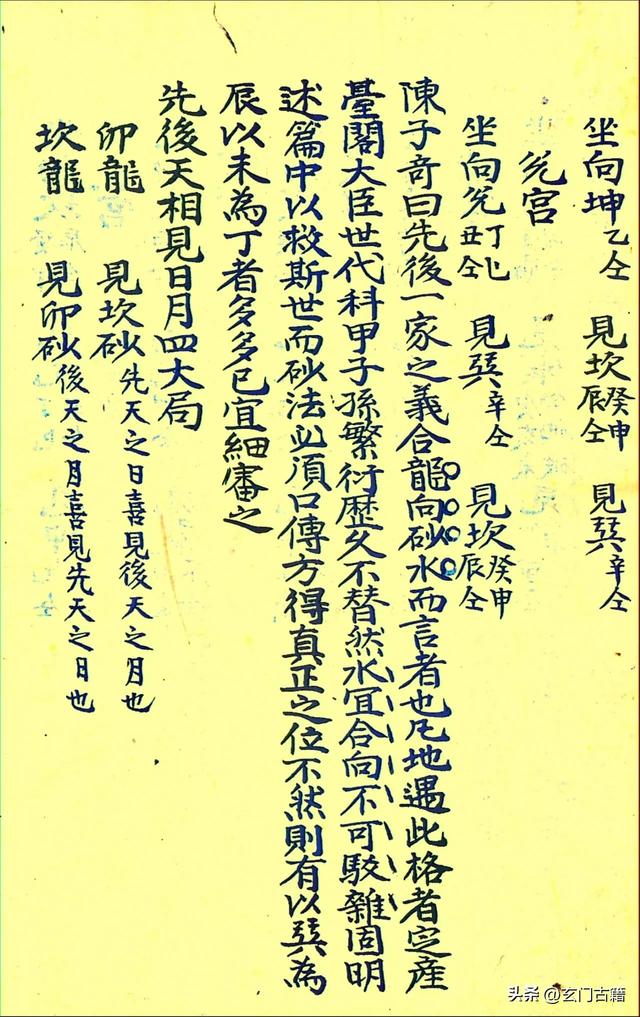 坐向坤乙仝　見坎癸申辰仝　見巽辛仝
兊宮
坐向兊丁巳丑仝　見巽辛仝　見坎癸申辰仝
陳子奇曰先後一家之義合龍向砂水而言者也凡地遇此格者定產
臺閣大臣世代科甲子孫繁衍歷久不替然水宜合向不可駁雜固明
述篇中以救斯世而砂法必須口傳方得真正之位不然則有以巽為
辰以未為丁者多多已宜細審之
先後天相見日月四大局
卯龍　見坎砂先天之日喜見後天之月也
坎龍　見卯砂後天之月喜見先天之日也
头条 @玄门古籍